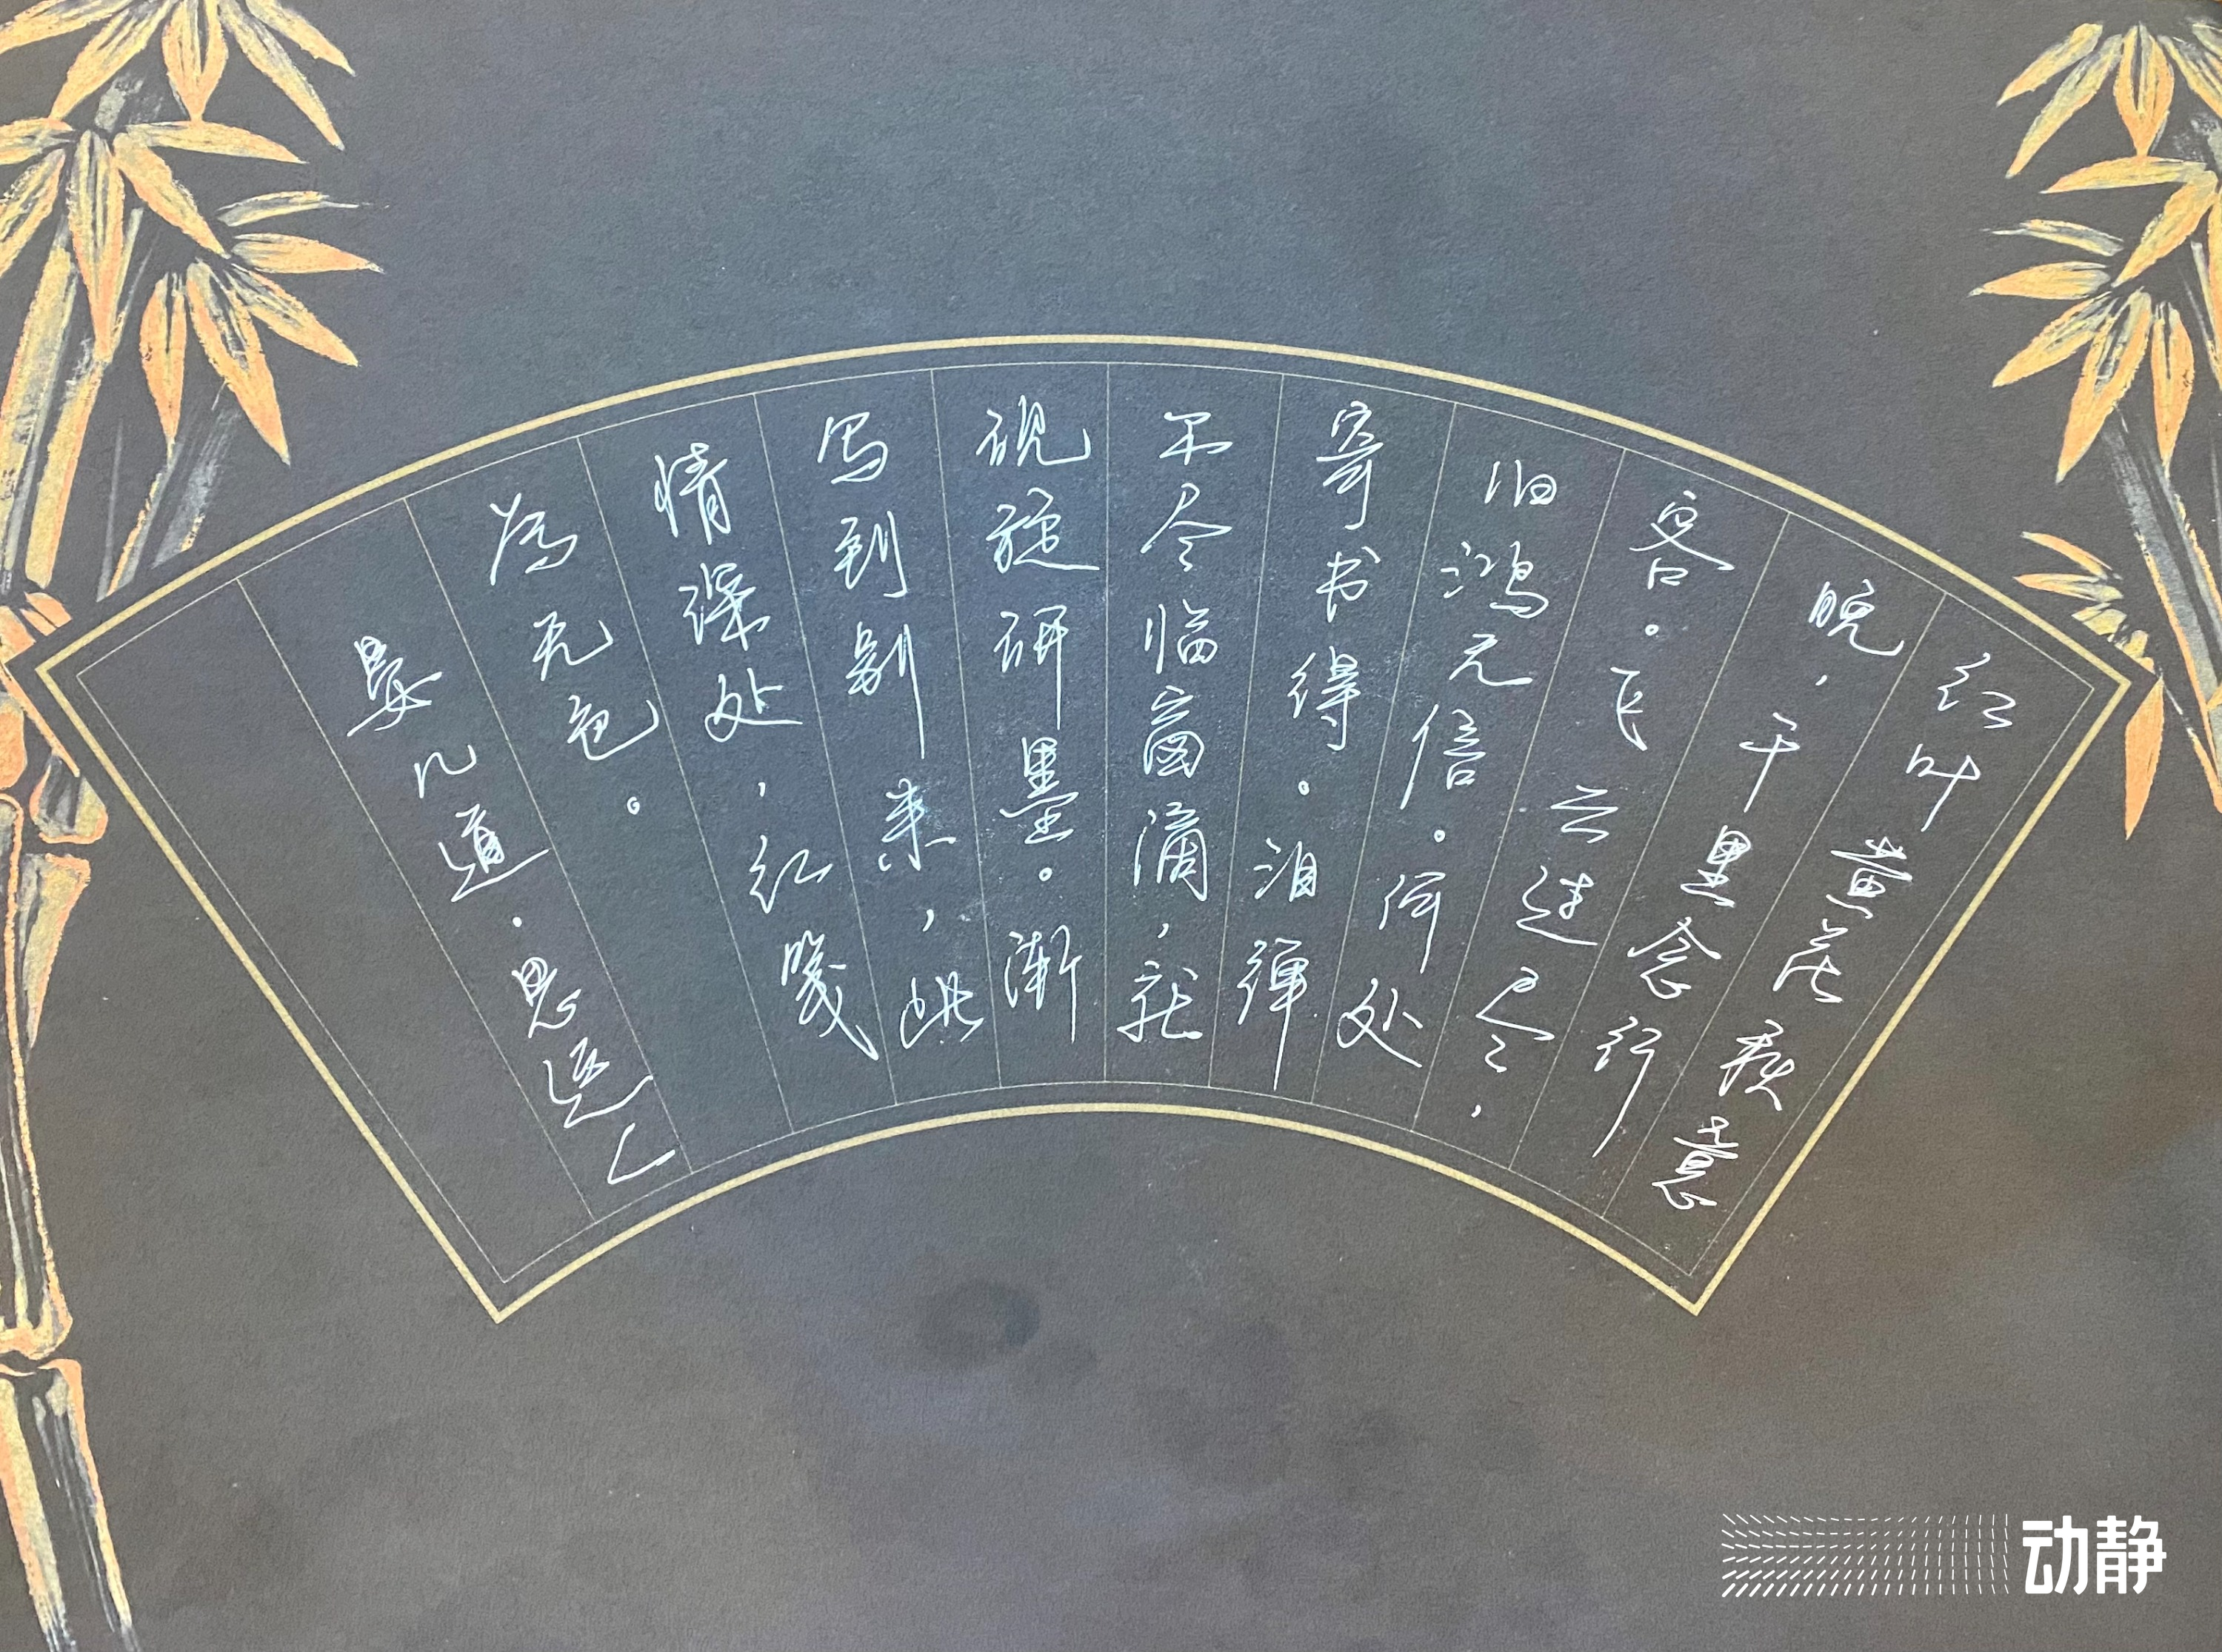 红叶黄花秋意
晚，千里念行
客。飞云过尽，
归鸿无信。何处
寄书得。泪弹
不尽临窗滴，就
砚旋研墨。渐
写到别来，此
情深处，红笺
为无色。
晏几道·思远人
动静